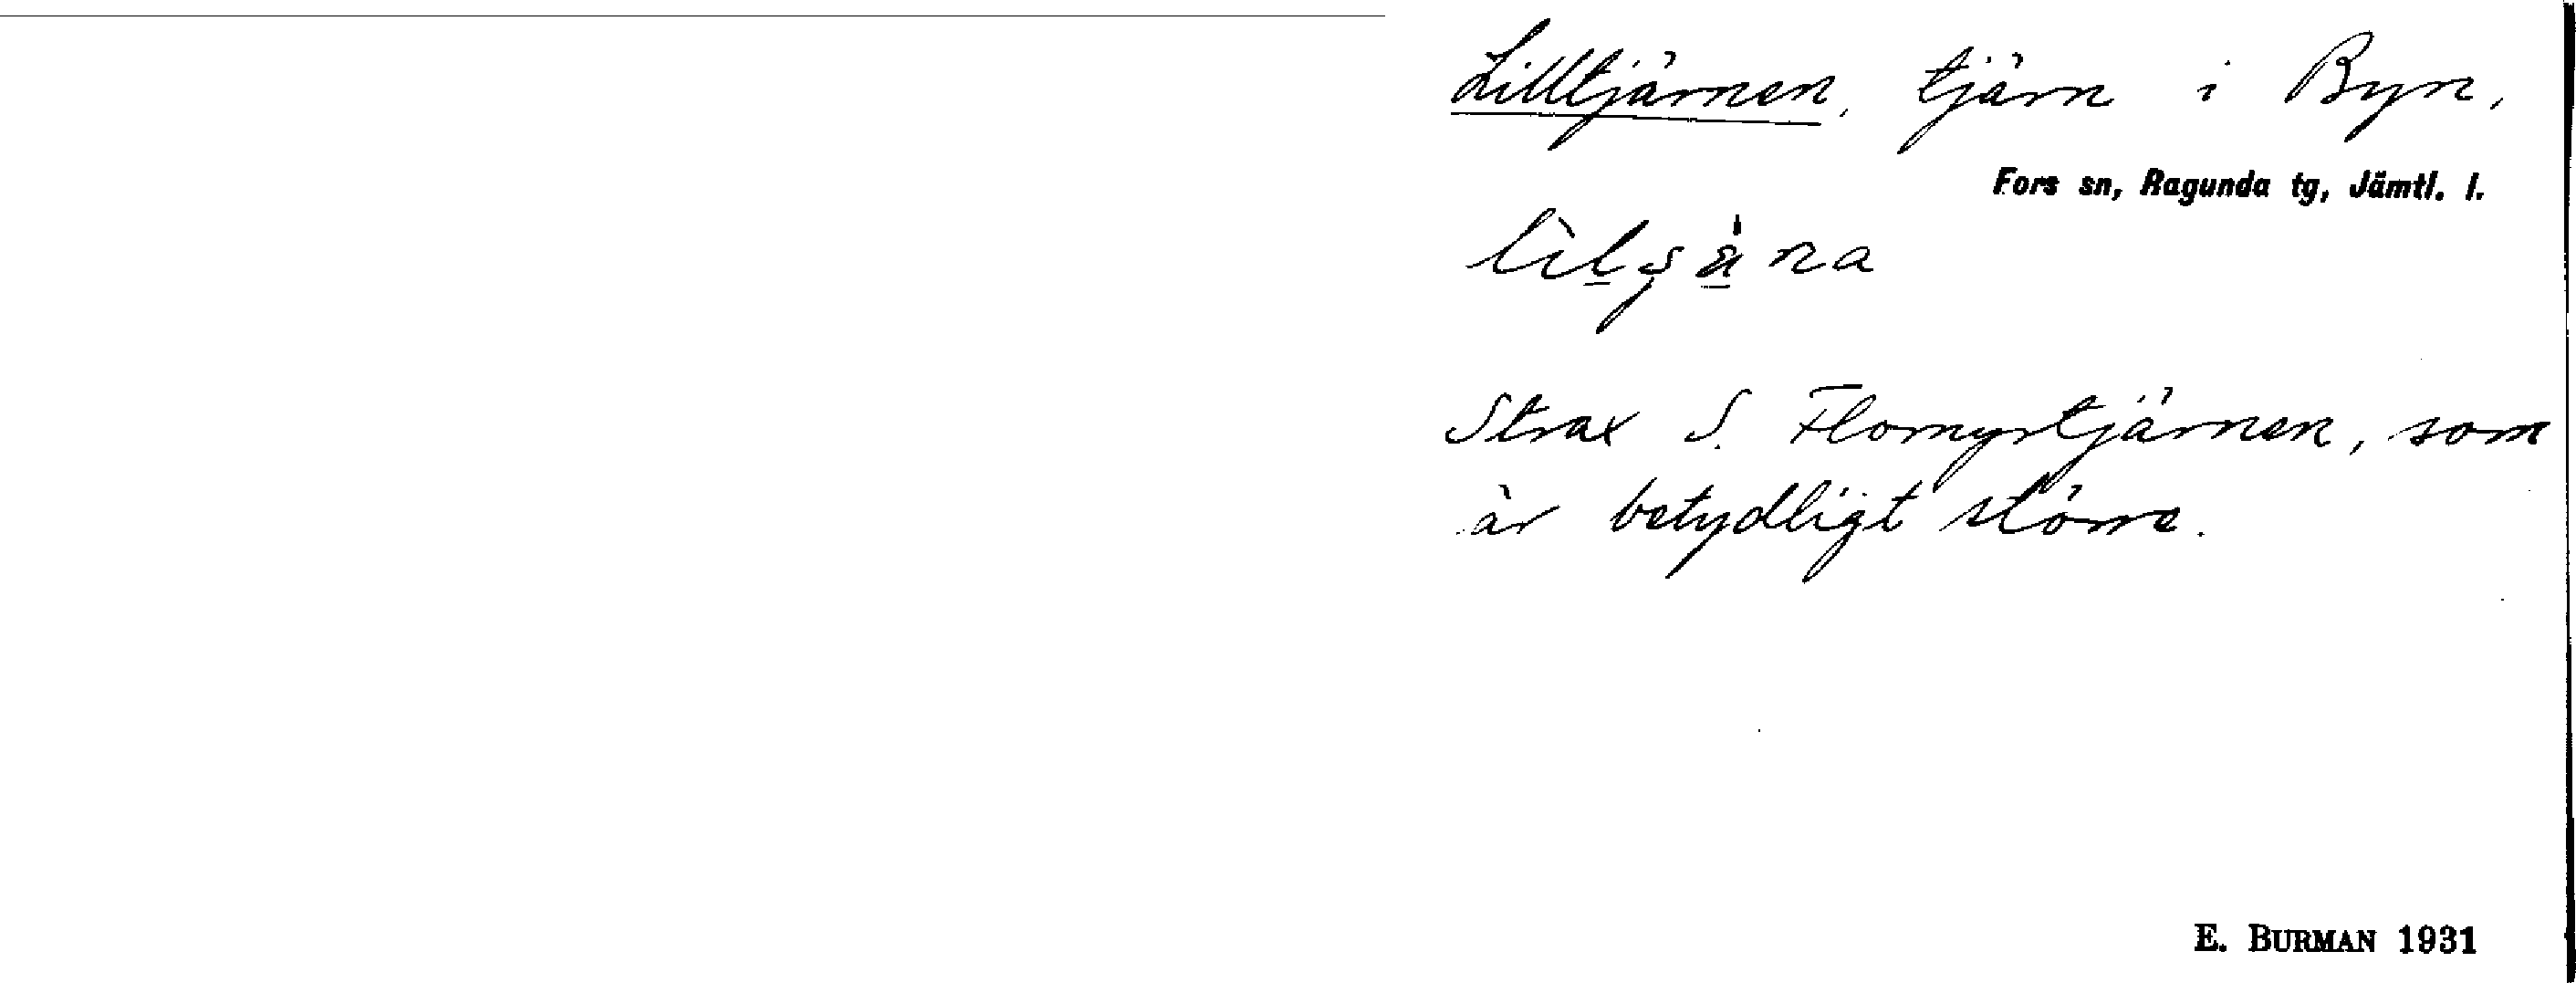 Lilltjärnen, tjärn i Byn,
Fors sn, Ragunda tg, Jämtl. l.
Strax S. Flomyrtjärnen, som
är betydligt större.
E. BURMAN 1931